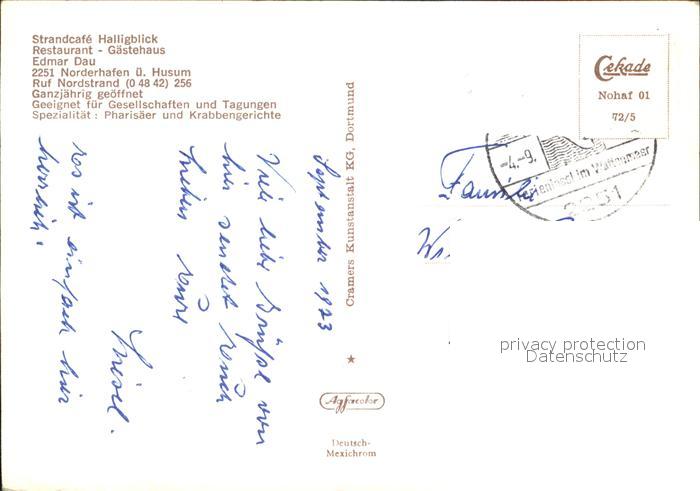 Strandcafé Halligblick
Restaurant - Gästehaus
Edmar Dau
2251 Norderhafen ü. Husum
Ruf Nordstrand (0 48 42) 256
Ganzjährig geöffnet
Geeignet für Gesellschaften und Tagungen
Spezialität : Pharisäer und Krabbengerichte
September 1973
Viele liebe Grüße von
hier sendet Euch
Eure
Christel.
es ist einfach hier
herrlich.
Cramers Kunstanstalt KG, Dortmund
Agfacolor
Deutsch-
Mexichrom
Cekade
Nohaf 01
72/5
-4.-9.
Ferieninsel im Wattenmeer
2251
Familie
privacy protection
Datenschutz